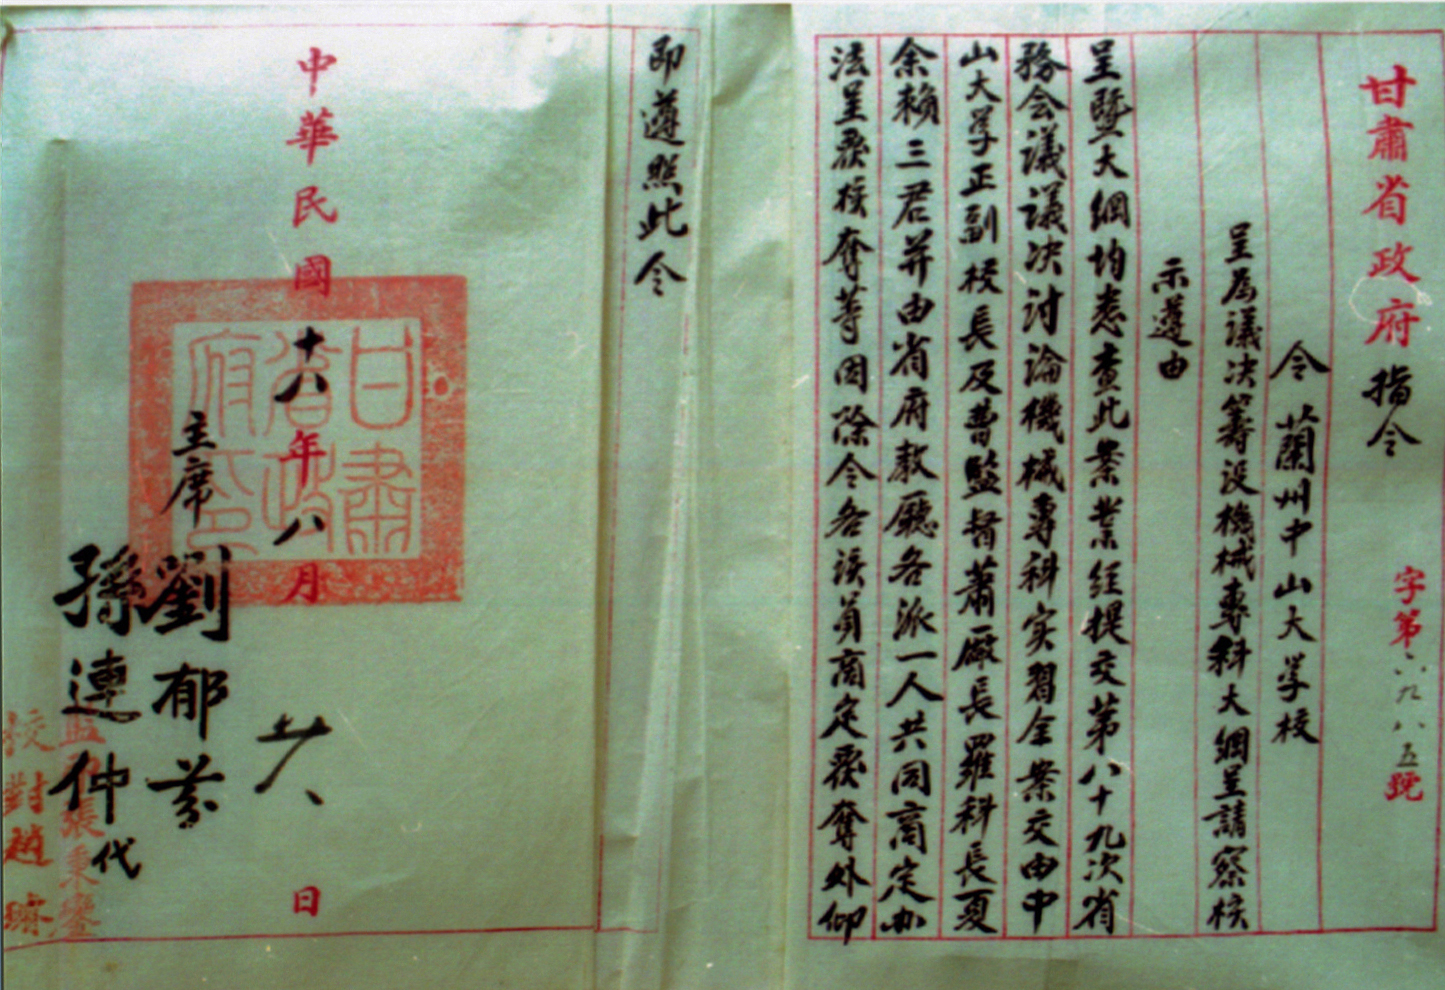 甘肅省政府指令
字第六九八五號
令蘭州中山大学校
呈爲議决籌设機械專科大綱呈請察核
示遵由
呈暨大綱均悉查此案業经提交第八十九次省
務会議議决討論機械專科实習全案交由中
山大学正副校長及曹監督蕭廠長羅科長夏
余賴三君并由省府教廳各派一人共同商定办
法呈覆核奪等因除令各该員商定覆奪外仰
即遵照此令
中華民國十八年八月廿八日
甘肅省政府印
主席劉郁芬
孫連仲代
監印張秉
校對趙